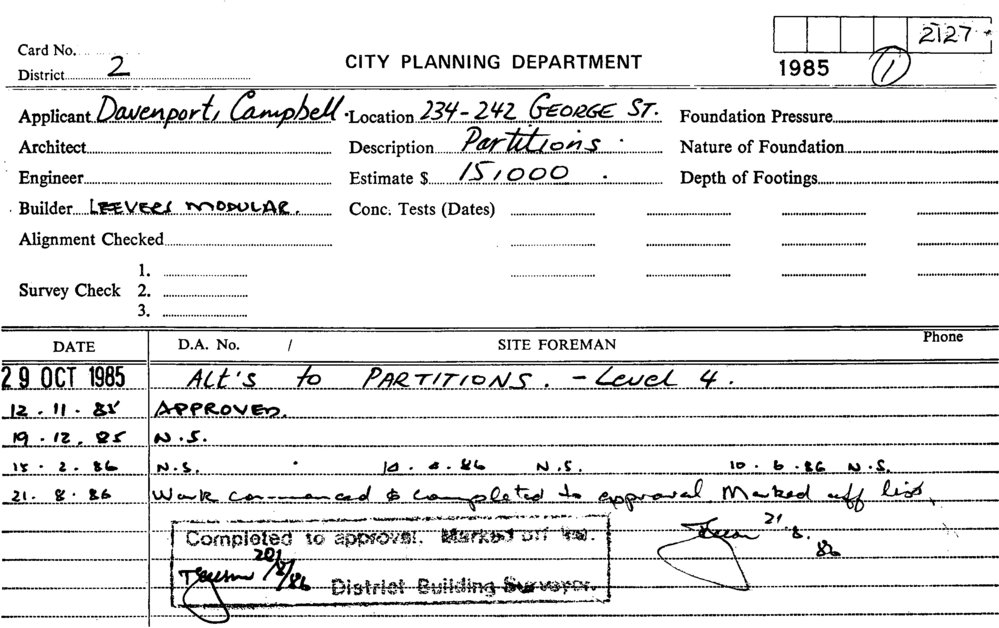 2127
Card No.
District 2
CITY PLANNING DEPARTMENT
1985 1
Applicant Davenport, Campbell. Location 234-242 GEORGE ST. Foundation Pressure
Architect Description Partitions. Nature of Foundation
Engineer Estimate $ 15,000. Depth of Footings
Builder LEEVERS MODULAR. Conc. Tests (Dates)
Alignment Checked
1.
Survey Check 2.
3.
DATE D.A. No. / SITE FOREMAN Phone
29 OCT 1985 ALT'S to PARTITIONS. - Level 4.
12.11.85 APPROVED.
19.12.85 N.S.
15.2.86 N.S. N.S. 10.6.86 N.S.
21.8.86 Work commenced & completed to approval. Marked off list.
21.8.86
Completed to approval. Marked off list.
District Building Surveyor.